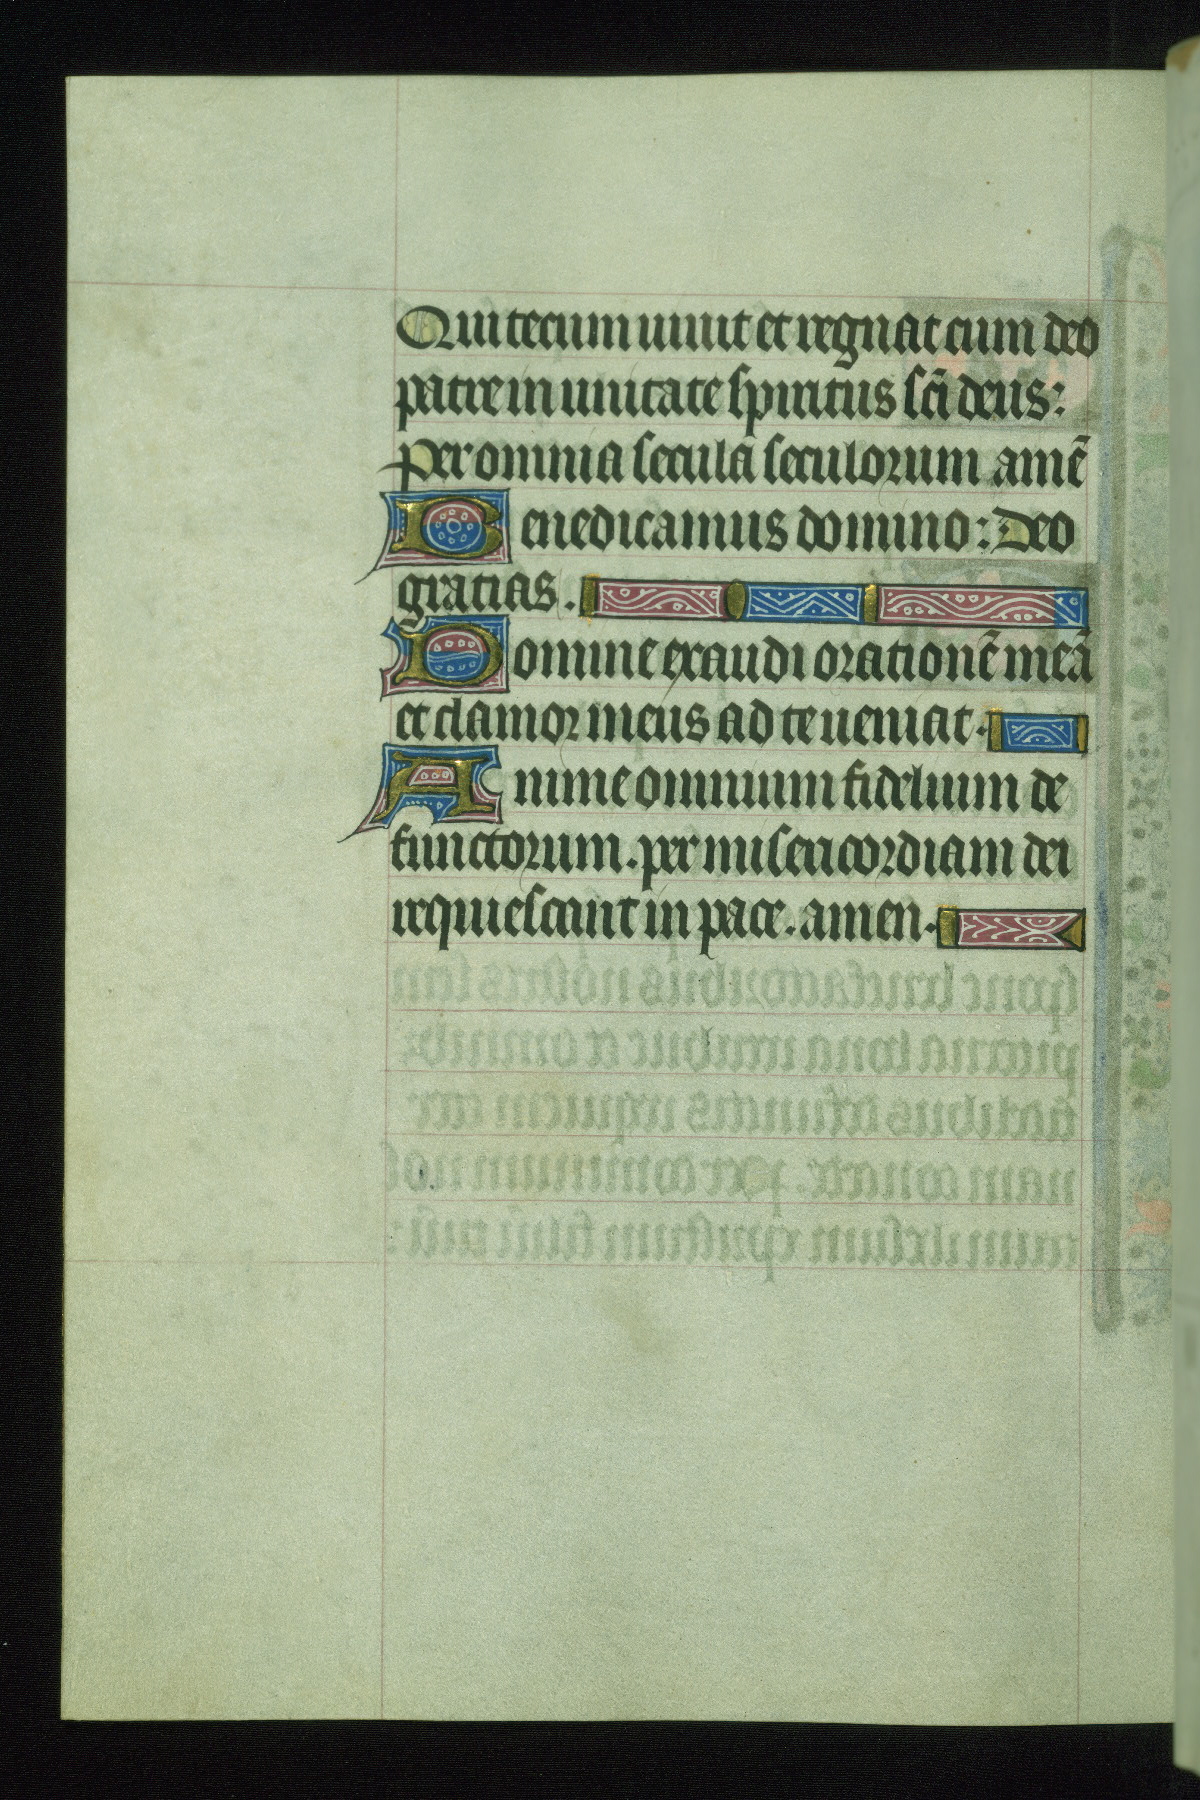 Qui tecum uiuit et regnat cum deo
patre in unitate spiritus sc̄i deus:
Per omnia secula seculorum amē
Benedicamus domino: Deo
gratias.
Domine exaudi orationē meā
et clamor meus ad te ueniat.
Anime omnium fidelium de
functorum. per misericordiam dei
requiescant in pace. amen.